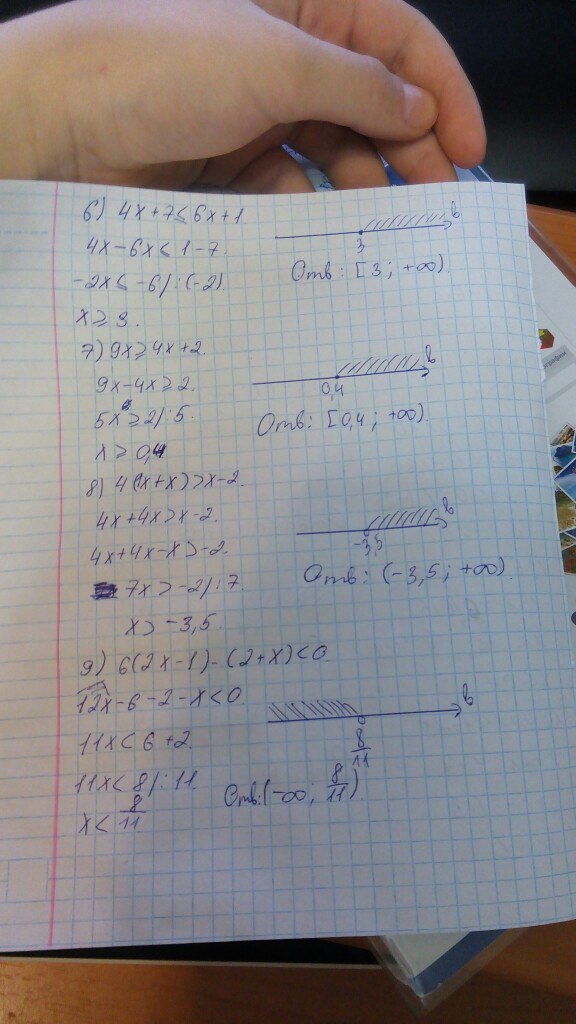 6) 4x+7≤6x+1.
4x-6x≤1-7.
-2x≤-6/:(-2)
x≥3.
3
Отв: [3; +∞)
7) 9x≥4x+2.
9x-4x≥2.
5x≥2/:5.
x≥0,4
0,4
Отв: [0,4; +∞).
8) 4(x+x)>x-2.
4x+4x>x-2.
4x+4x-x>-2.
7x>-2/:7.
x>-3,5.
-3,5
Отв: (-3,5; +∞).
9) 6(2x-1)-(2+x)<0.
12x-6-2-x<0.
11x<6+2.
11x<8/:11.
x<8/11
8/11
Отв:(-∞; 8/11)